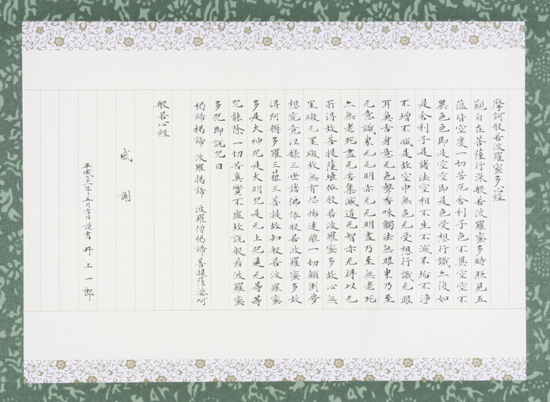 摩訶般若波羅蜜多心経
觀自在菩薩行深般若波羅蜜多時照見五
蘊皆空度一切苦厄舎利子色不異空空不
異色色即是空空即是色受想行識亦復如
是舎利子是諸法空相不生不滅不垢不浄
不増不減是故空中無色无受想行識无眼
耳鼻舌身意无色聲香味觸法無眼界乃至
无意識界无無明亦无无明盡乃至無老死
亦無老死盡无苦集滅道无智亦无得以无
所得故菩提薩埵依般若波羅蜜多故心無
罣礙无罣礙故無有恐怖遠離一切顛倒夢
想究竟涅槃三世諸佛依般若波羅蜜多故
得阿耨多羅三藐三菩提故知般若波羅蜜
多是大神咒是大明咒是无上咒是无等等
咒能除一切苦真實不虚故説般若波羅蜜
多咒即説咒曰
揭諦揭諦 波羅揭諦 波羅僧揭諦 菩提薩婆訶
般若心経
感謝
平成二一年五月吉日 謹書 井上一郎